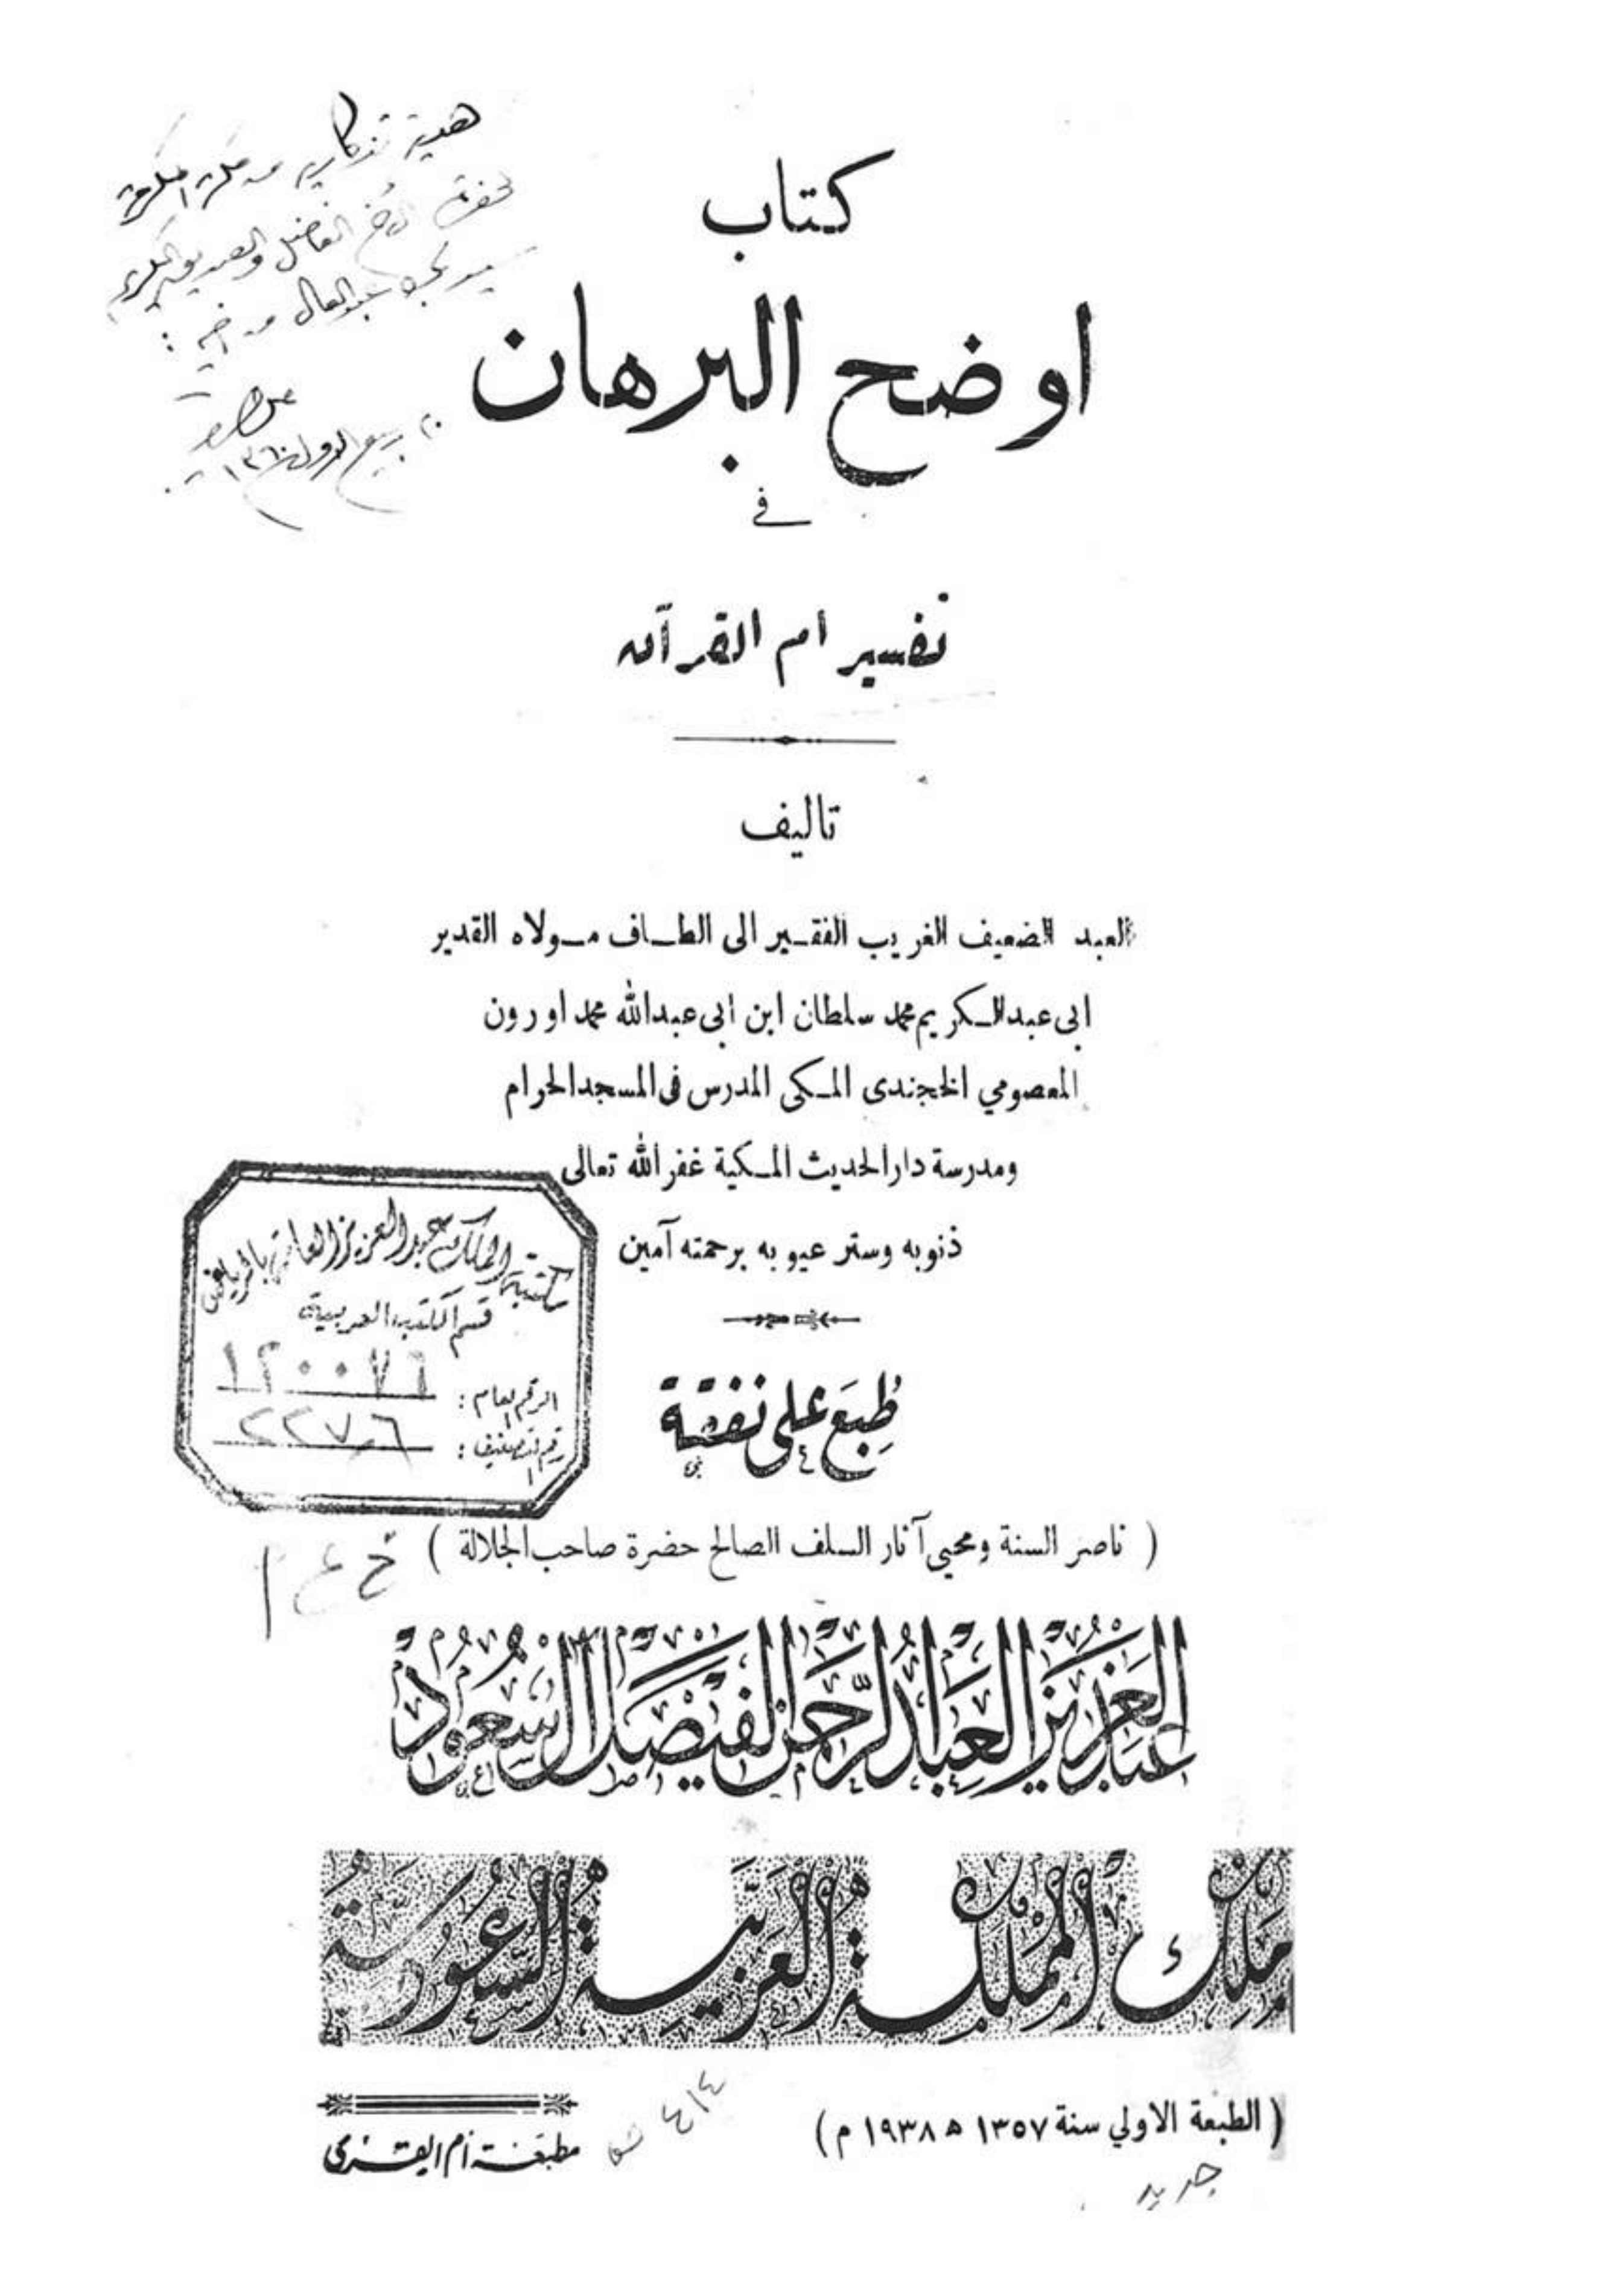 هدية تذكارية من مكة المكرمة
لحضرة الأخ الفاضل والصديق الكريم
عبدالعال من أخيه :
ربيع الاول ١٣٦٠
كتاب
اوضح البرهان
في
تفسير ام القرآن
تاليف
العبد الضعيف الغريب الفقير الى الطاف مولاه القدير
ابى عبدالكريم محمد سلطان ابن ابى عبدالله محمد اورون
المعصومي الخجندى المكى المدرس فى المسجد الحرام
ومدرسة دار الحديث المكية غفر الله تعالى
ذنوبه وستر عيوبه برحمته آمين
مكتبة الملك عبدالعزيز العامة بالرياض
قسم الكتب العربية
الرقم العام : ١٢٠٠٧٦
رقم التصنيف : ٢٢٧٫٦
طُبِعَ على نفقة
( ناصر السنة ومحيى آثار السلف الصالح حضرة صاحب الجلالة )
خ ع م
عبد العزيز العبد الرحمن الفيصل السعود
ملك المملكة العربية السعودية
( الطبعة الاولي سنة ١٣٥٧ ه ١٩٣٨ م )
٤١٤
مطبعة أم القرى
جديد